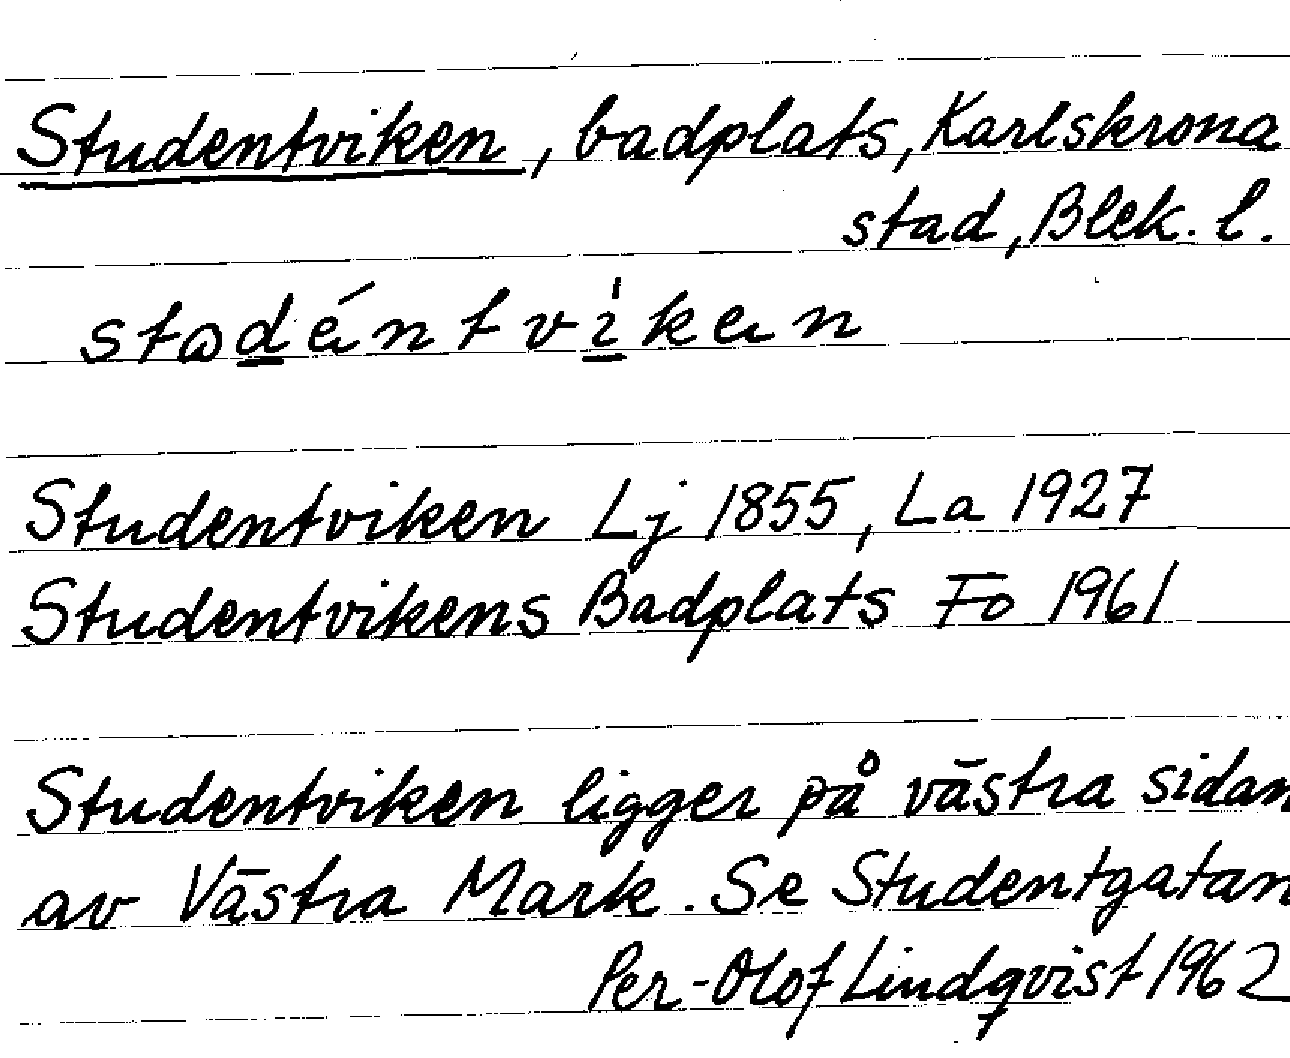 Studentviken, badplats, Karlskrona
stad, Blek. l.
Studentviken Lj 1855, La 1927
Studentvikens Badplats Fo 1961
Studentviken ligger på västra sidan
av Västra Mark. Se Studentgatan
Per-Olof Lindqvist 1962